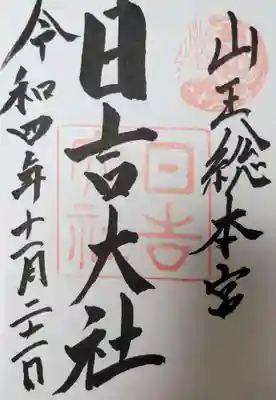 山王総本宮
日吉大社
令和四年十一月二十二日
日吉
大社